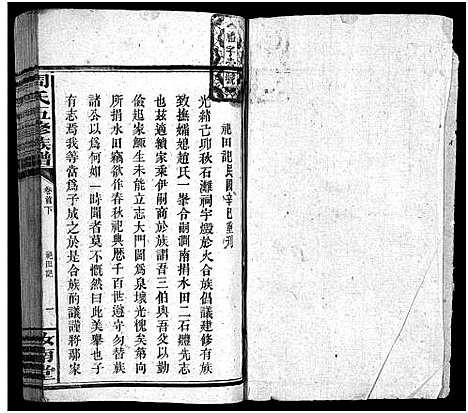 祀田記民國辛巳重刊
光緒己卯秋石灘祠宇燬於火合族倡議建修有族
致撫孀媳趙氏一峯合嗣澗南捐水田二石體先志
也茲適續家乘伊嗣商於族謂吾三伯與吾父以勤
儉起家鯫生未能立志大門閭爲泉壤光愧矣第向
所捐水田竊欲作春秋祀典歷千百世遵守勿替族
諸公以爲何如一時聞者莫不慨然曰此美舉也子
有志焉我等當爲子成之於是合族酌議謹將鄢家
周氏五修族譜
卷首下
祀田記
一
汝南堂